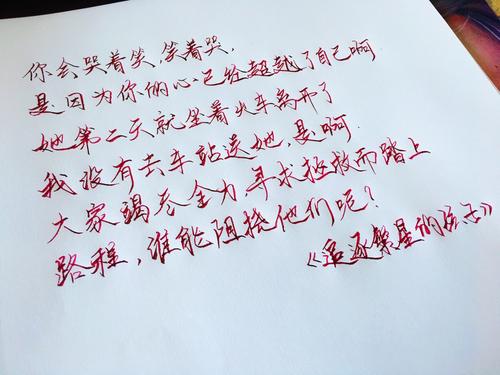 你会哭着笑,笑着哭,
是因为你的心已经超越了自己啊
她第二天就坐着火车离开了
我没有去车站送她,是啊.
大家竭尽全力,寻求拯救而踏上
路程,谁能阻挠他们呢?
《追逐繁星的孩子》